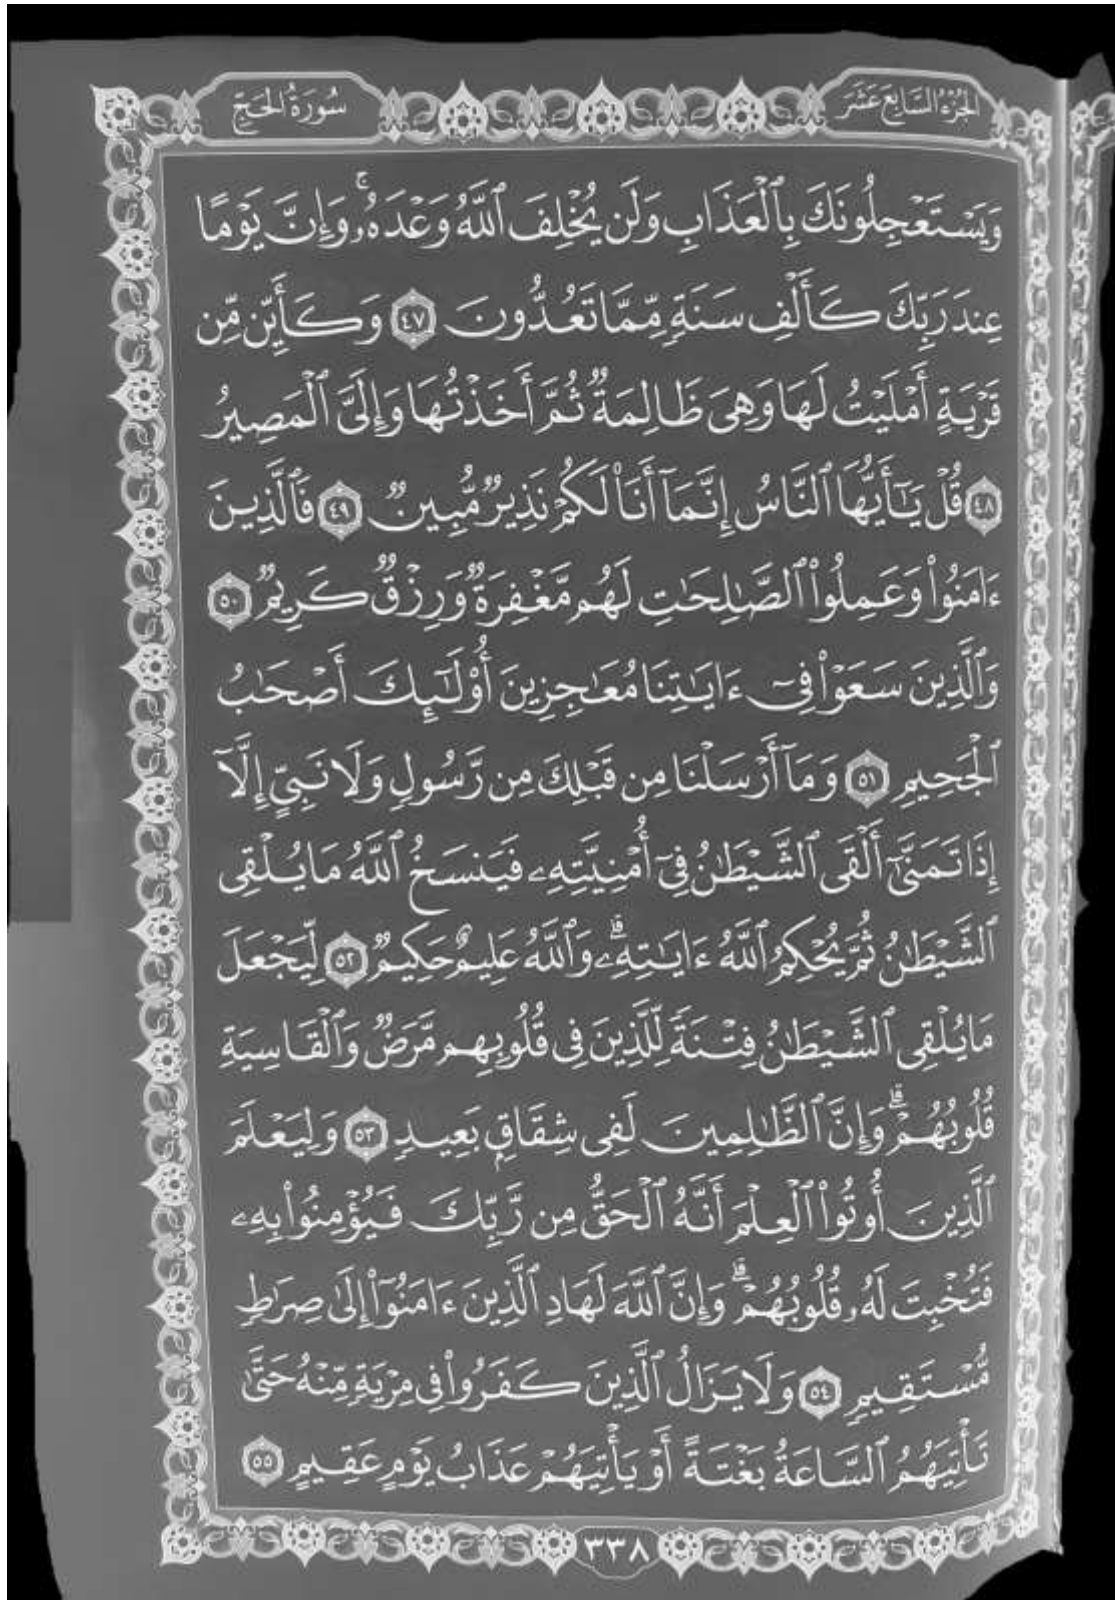 الجُزْءُ السَّابِعَ عَشَرَ
سُورَةُ الحَجِّ
وَيَسْتَعْجِلُونَكَ بِٱلْعَذَابِ وَلَن يُخْلِفَ ٱللَّهُ وَعْدَهُۥۚ وَإِنَّ يَوْمًا
عِندَ رَبِّكَ كَأَلْفِ سَنَةٍ مِّمَّا تَعُدُّونَ ٤٧ وَكَأَيِّن مِّن
قَرْيَةٍ أَمْلَيْتُ لَهَا وَهِىَ ظَالِمَةٌ ثُمَّ أَخَذْتُهَا وَإِلَىَّ ٱلْمَصِيرُ
٤٨ قُلْ يَـٰٓأَيُّهَا ٱلنَّاسُ إِنَّمَآ أَنَا۠ لَكُمْ نَذِيرٌ مُّبِينٌ ٤٩ فَٱلَّذِينَ
ءَامَنُوا۟ وَعَمِلُوا۟ ٱلصَّـٰلِحَـٰتِ لَهُم مَّغْفِرَةٌ وَرِزْقٌ كَرِيمٌ ٥٠
وَٱلَّذِينَ سَعَوْا۟ فِىٓ ءَايَـٰتِنَا مُعَـٰجِزِينَ أُو۟لَـٰٓئِكَ أَصْحَـٰبُ
ٱلْجَحِيمِ ٥١ وَمَآ أَرْسَلْنَا مِن قَبْلِكَ مِن رَّسُولٍ وَلَا نَبِىٍّ إِلَّآ
إِذَا تَمَنَّىٰٓ أَلْقَى ٱلشَّيْطَـٰنُ فِىٓ أُمْنِيَّتِهِۦ فَيَنسَخُ ٱللَّهُ مَا يُلْقِى
ٱلشَّيْطَـٰنُ ثُمَّ يُحْكِمُ ٱللَّهُ ءَايَـٰتِهِۦۗ وَٱللَّهُ عَلِيمٌ حَكِيمٌ ٥٢ لِّيَجْعَلَ
مَا يُلْقِى ٱلشَّيْطَـٰنُ فِتْنَةً لِّلَّذِينَ فِى قُلُوبِهِم مَّرَضٌ وَٱلْقَاسِيَةِ
قُلُوبُهُمْۗ وَإِنَّ ٱلظَّـٰلِمِينَ لَفِى شِقَاقٍۭ بَعِيدٍ ٥٣ وَلِيَعْلَمَ
ٱلَّذِينَ أُوتُوا۟ ٱلْعِلْمَ أَنَّهُ ٱلْحَقُّ مِن رَّبِّكَ فَيُؤْمِنُوا۟ بِهِۦ
فَتُخْبِتَ لَهُۥ قُلُوبُهُمْۗ وَإِنَّ ٱللَّهَ لَهَادِ ٱلَّذِينَ ءَامَنُوٓا۟ إِلَىٰ صِرَٰطٍ
مُّسْتَقِيمٍ ٥٤ وَلَا يَزَالُ ٱلَّذِينَ كَفَرُوا۟ فِى مِرْيَةٍ مِّنْهُ حَتَّىٰ
تَأْتِيَهُمُ ٱلسَّاعَةُ بَغْتَةً أَوْ يَأْتِيَهُمْ عَذَابُ يَوْمٍ عَقِيمٍ ٥٥
٣٣٨